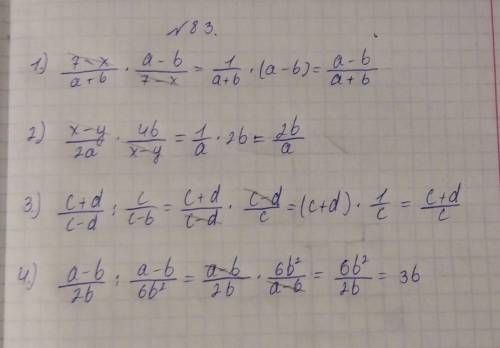 №83.
1.) (7-x)/(a+b) · (a-b)/(7-x) = 1/(a+b) · (a-b) = (a-b)/(a+b)
2) (x-y)/(2a) · (4b)/(x-y) = 1/a · 2b = 2b/a
3.) (c+d)/(c-d) : c/(c-b) = (c+d)/(c-d) · (c-d)/c = (c+d) · 1/c = (c+d)/c
4.) (a-b)/(2b) : (a-b)/(6b²) = (a-b)/(2b) · (6b²)/(a-b) = 6b²/2b = 3b